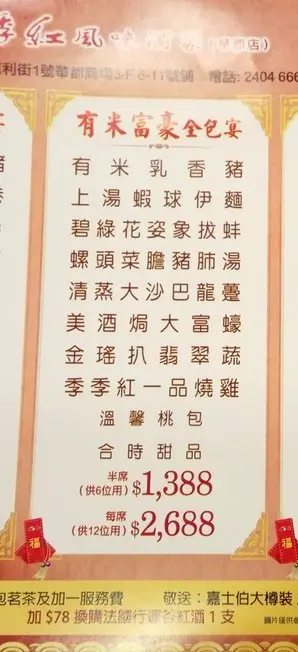 季紅風味酒家(華都店)
利街1號華都商場3/F 8-11號舖 電話: 2404 666
有米富豪全包宴
有米乳香豬
上湯蝦球伊麵
碧綠花姿象拔蚌
螺頭菜膽豬肺湯
清蒸大沙巴龍躉
美酒焗大富蠔
金瑤扒翡翠蔬
季季紅一品燒雞
溫馨桃包
合時甜品
半席
(供6位用) $1,388
每席
(供12位用) $2,688
福
福
包茗茶及加一服務費 敬送：嘉士伯大樽裝
加 $78 換購法國行運谷紅酒 1 支 圖片僅供